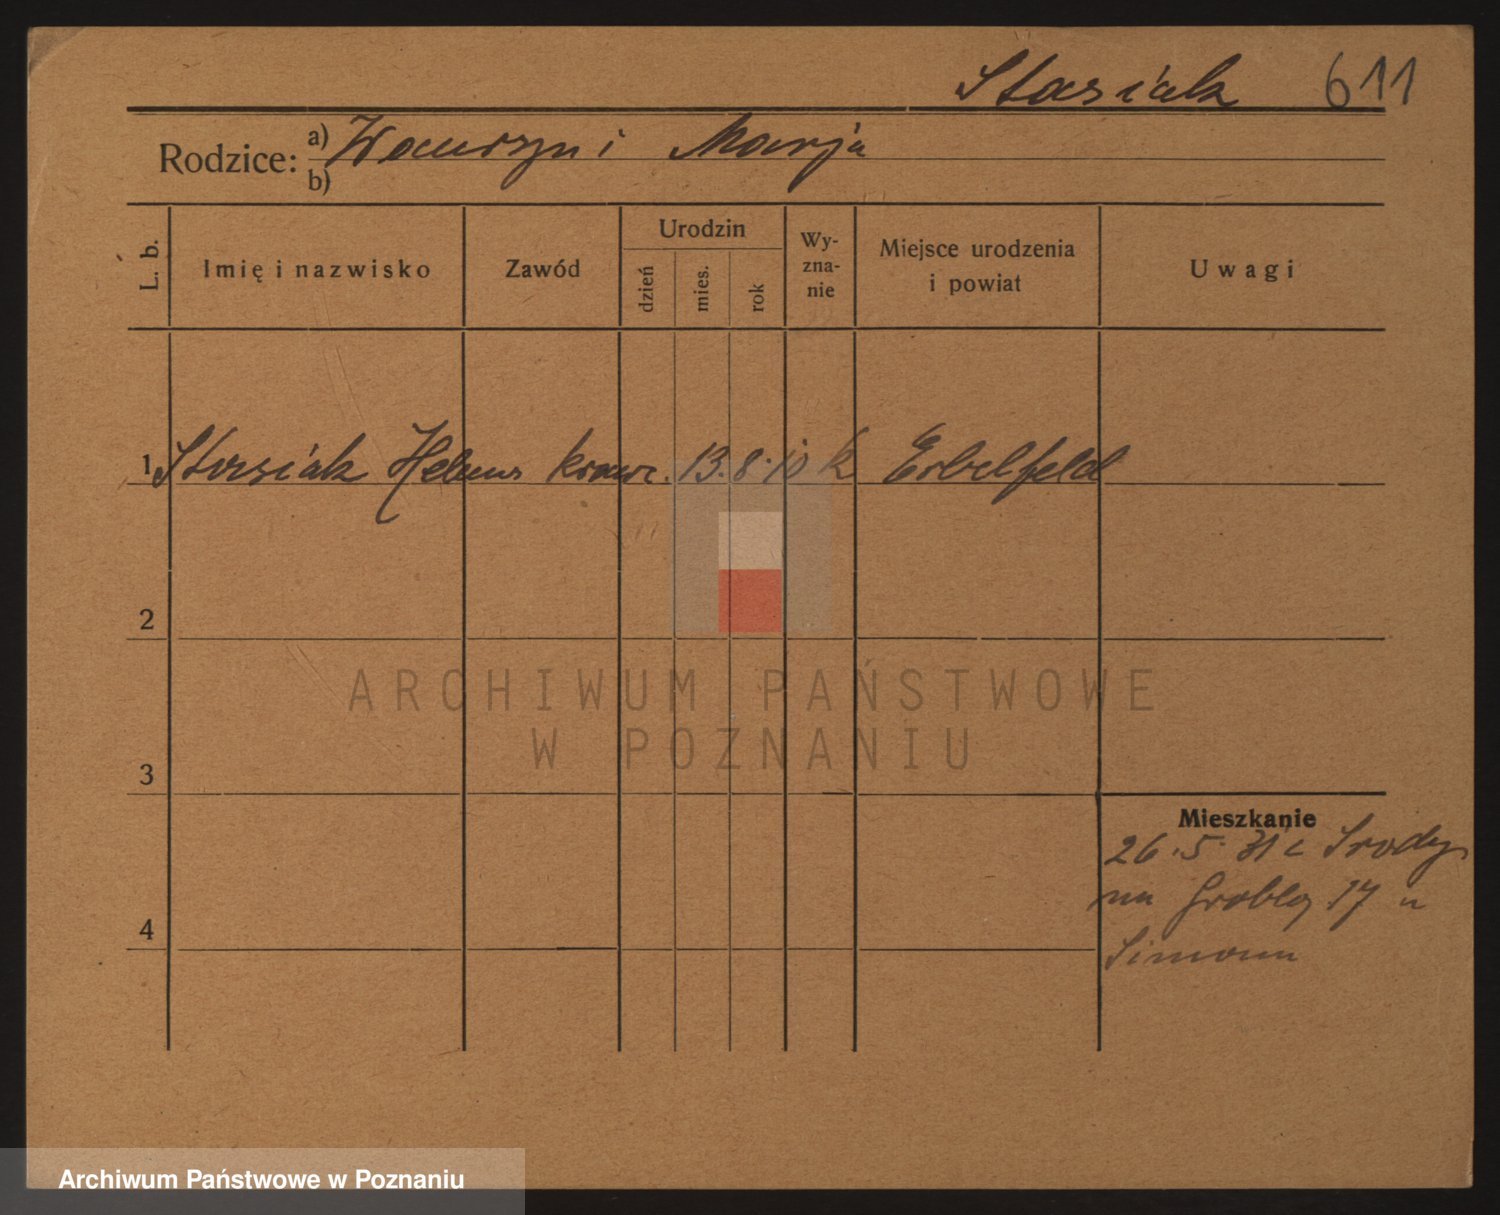 Stasiak 611
Rodzice: a) Wawrzyn i Marja
b)
L. b.
Imię i nazwisko
Zawód
Urodzin
dzień
mies.
rok
Wy-
zna-
nie
Miejsce urodzenia
i powiat
Uwagi
1 Stasiak Helena krawc. 13. 8. 10 k Erbelfeld
2
ARCHIWUM PAŃSTWOWE
W POZNANIU
3
Mieszkanie
26. 5. 31 z Środy
na Grobla 17 u
Simona
4
Archiwum Państwowe w Poznaniu